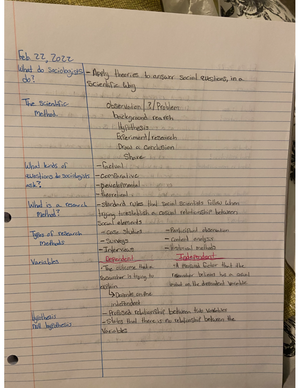 Feb 22, 2022
What do Sociologists do?
- Apply theories to answer social questions, in a
Scientific Way
The Scientific Method
Observation / ? / Problem
background
Hypothesis
Experiment / research
Draw a conclusion
Share
What kinds of questions do Sociologists ask?
- factual
- Comparative
- developmental
- theoretical
What is a research Method?
- standard rules that social scientists follow when
trying to establish a causal relationship between
social elements
Types of research Methods
- case Studies
- Surveys
- Interviews
- Participant observation
- content analysis
- historical analysis
Variables
Dependent
- The outcome that a
researcher is trying to
explain
↳ Depends on the
independent
Independent
- A Measured factor that the
researcher believes has a causal
impact on the dependent variable
hypothesis
- Proposed relationship between two variables
null hypothesis
- States that there is no relationship between the
Variables